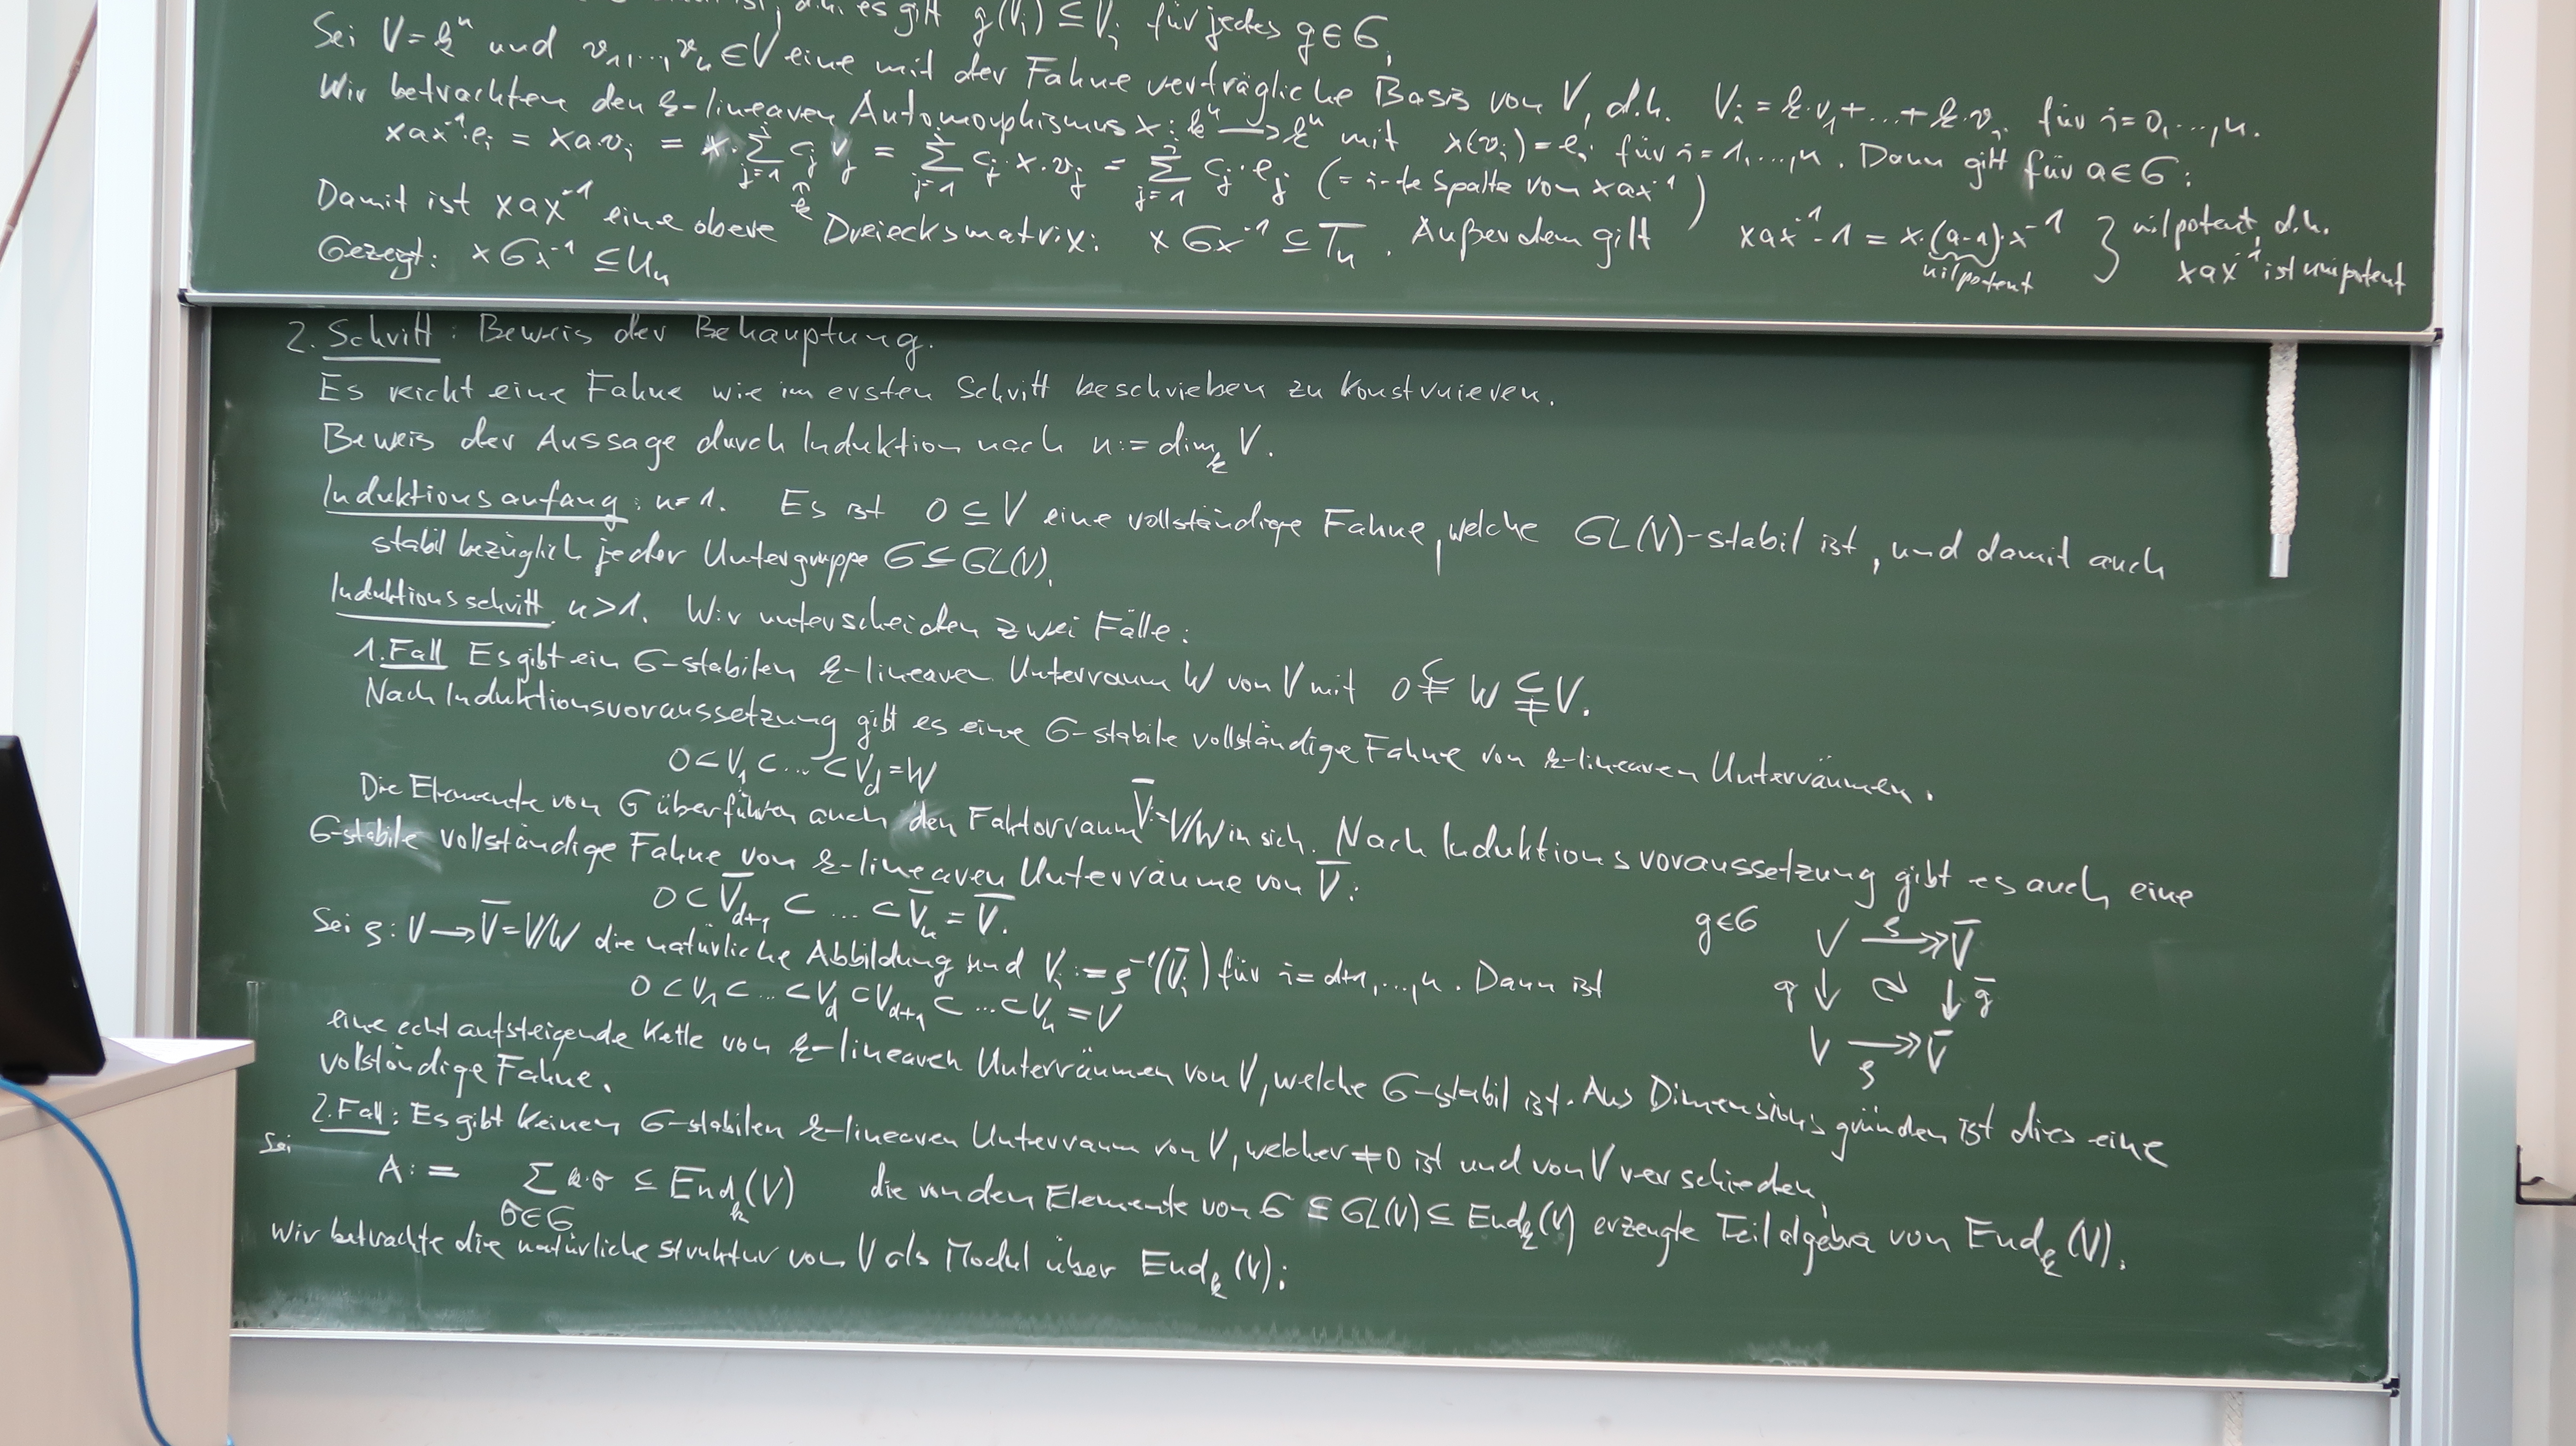 ist, d.h. es gilt g(Vᵢ) ⊆ Vᵢ für jedes g∈G.
Sei V=kⁿ und v₁,...,vₙ ∈V eine mit der Fahne verträgliche Basis von V, d.h. Vᵢ = k·v₁+...+k·vᵢ für i=0,...,n.
Wir betrachten den k-linearen Automorphismus x: kⁿ → kⁿ mit x(vᵢ)=eᵢ für i=1,...,n. Dann gilt für a∈G:
xax⁻¹eᵢ = xa·vᵢ = x·∑ⱼ₌₁ⁱ cⱼ vⱼ = ∑ⱼ₌₁ⁱ cⱼ·x·vⱼ = ∑ⱼ₌₁ⁱ cⱼ·eⱼ (= i-te Spalte von xax⁻¹)
k
Damit ist xax⁻¹ eine obere Dreiecksmatrix: xGx⁻¹ ⊆ Tₙ. Außerdem gilt xax⁻¹-1 = x·(a-1)·x⁻¹ } nilpotent, d.h.
nilpotent xax⁻¹ ist unipotent
Gezegt: xGx⁻¹ ⊆ Uₙ
2. Schritt: Beweis der Behauptung.
Es reicht eine Fahne wie im ersten Schritt beschrieben zu konstruieren.
Beweis der Aussage durch Induktion nach n:= dimₖ V.
Induktionsanfang: n=1. Es ist 0 ⊆ V eine vollständige Fahne, welche GL(V)-stabil ist, und damit auch
stabil bezüglich jeder Untergruppe G ⊆ GL(V).
Induktionsschritt. n>1. Wir unterscheiden zwei Fälle:
1. Fall Es gibt ein G-stabilen k-linearen Unterraum W von V mit 0 ⊊ W ⊊ V.
Nach Induktionsvoraussetzung gibt es eine G-stabile vollständige Fahne von k-linearen Unterräumen.
0⊂V₁⊂...⊂V_d=W
Die Elemente von G überführen auch den Faktorraum V̄:=V/W in sich. Nach Induktionsvoraussetzung gibt es auch eine
G-stabile vollständige Fahne von k-linearen Unterräume von V̄:
0⊂V̄_{d+1} ⊂ ... ⊂V̄ₙ = V̄.
Sei ρ: V→V̄=V/W die natürliche Abbildung und Vᵢ:=ρ⁻¹(V̄ᵢ) für i=d+1,...,n. Dann ist
0⊂V₁⊂...⊂V_d⊂V_{d+1}⊂...⊂Vₙ=V
g∈G V ρ↠ V̄
g↓ ↻ ↓ḡ
V ↠ V̄
ρ
eine echt aufsteigende Kette von k-linearen Unterräumen von V, welche G-stabil ist. Aus Dimensionsgründen ist dies eine
vollständige Fahne.
2. Fall: Es gibt keinen G-stabilen k-linearen Unterraum von V, welcher ≠0 ist und von V verschieden.
Sei
A:= ∑_{σ∈G} k·σ ⊆ Endₖ(V) die von den Elemente von G ⊆ GL(V) ⊆ Endₖ(V) erzeugte Teilalgebra von Endₖ(V).
Wir betrachte die natürliche Struktur von V als Modul über Endₖ(V):